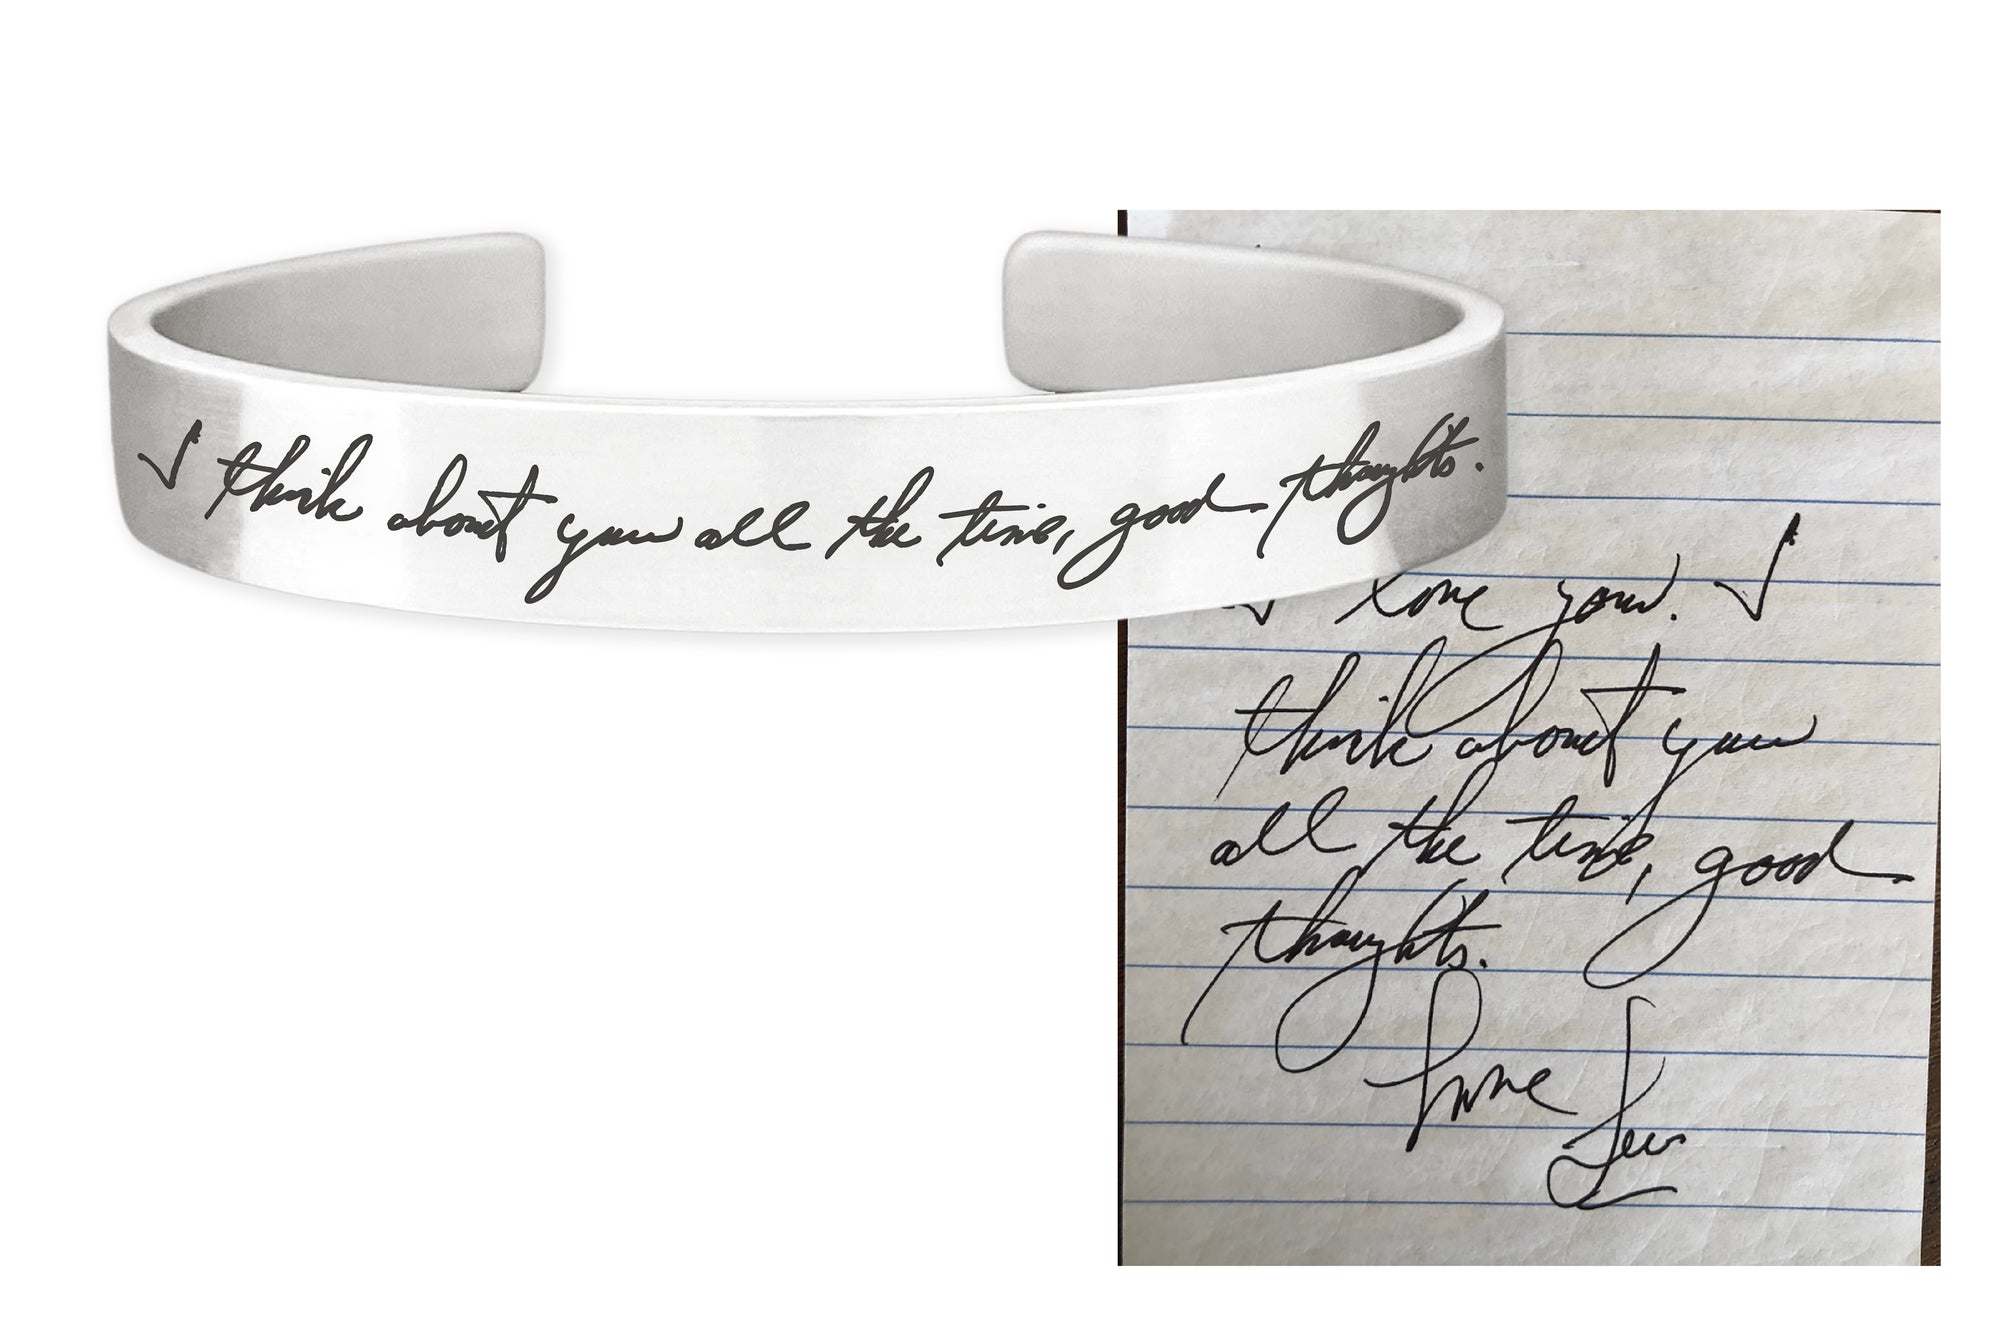 I think about you all the time, good thoughts.
I love you. I
think about you
all the time, good
thoughts.
Love
Lew